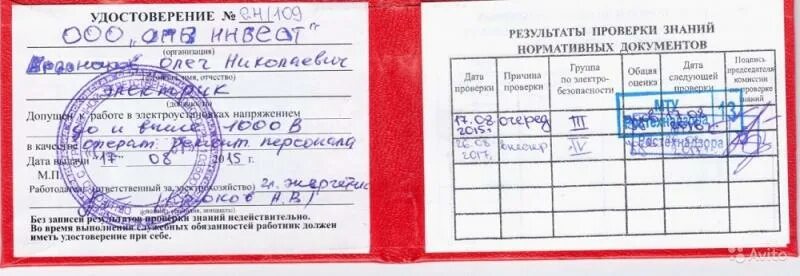 УДОСТОВЕРЕНИЕ № 24/109
ООО "СМВ ИНВЕСТ"
(организация)
Олег Николаевич
(фамилия, имя, отчество)
электрик
(должность)
Допущен к работе в электроустановках напряжением
до и выше 1000 В
в качестве операт. ремонт. персонала
Дата выдачи "17" 08 2015 г.
М.П.
Работодатель (ответственный за электрохозяйство) гл. энергетик
Без записей результатов проверки знаний недействительно.
Во время выполнения служебных обязанностей работник должен
иметь удостоверение при себе.
РЕЗУЛЬТАТЫ ПРОВЕРКИ ЗНАНИЙ
НОРМАТИВНЫХ ДОКУМЕНТОВ
Дата проверки
Причина проверки
Группа по электро-безопасности
Общая оценка
Дата следующей проверки
Подпись председателя комиссии по проверке знаний
17.08 2015г. очеред III
МТУ 13
Ростехнадзора
26.08 2017г. внеочер IV
Ростехнадзора
Avito